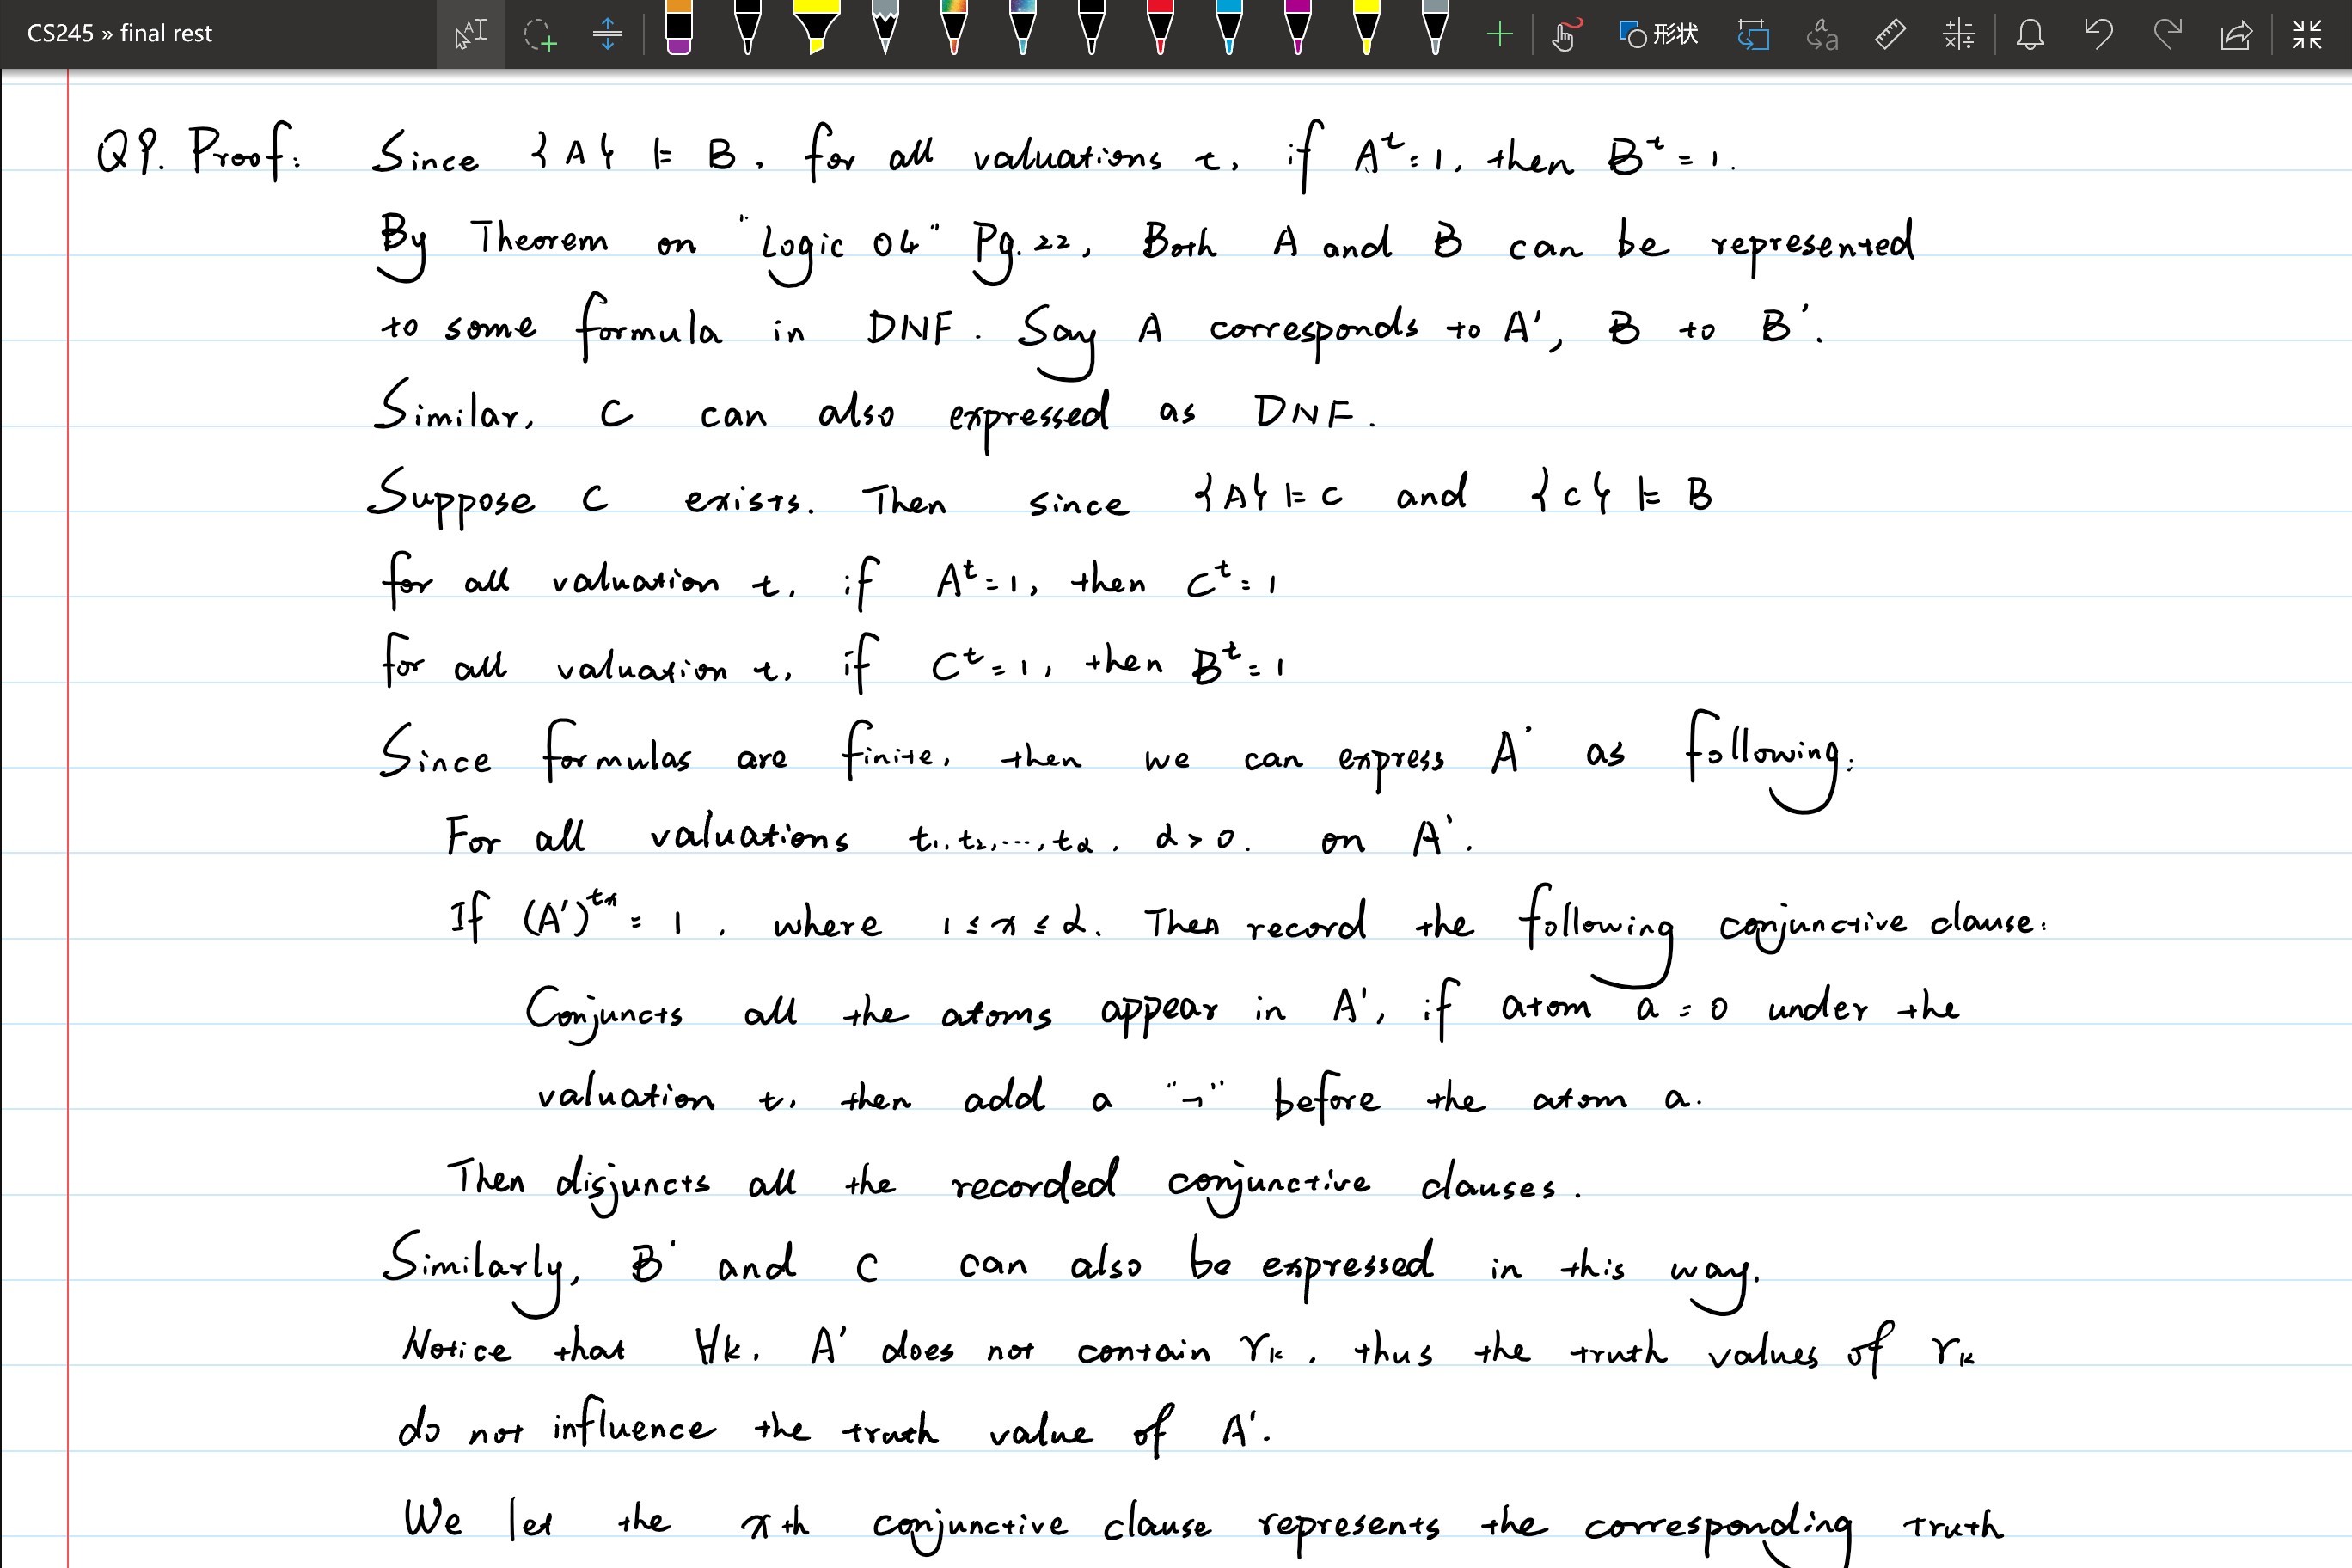 CS245 » final rest
形状
Q9. Proof: Since {A} ⊨ B, for all valuations t, if Aᵗ = 1, then Bᵗ = 1.
By Theorem on "Logic 04" Pg. 22, Both A and B can be represented
to some formula in DNF. Say A corresponds to A', B to B'.
Similar, C can also expressed as DNF.
Suppose C exists. Then since {A} ⊨ C and {C} ⊨ B
for all valuation t, if Aᵗ = 1, then Cᵗ = 1
for all valuation t, if Cᵗ = 1, then Bᵗ = 1
Since formulas are finite, then we can express A' as following:
For all valuations t₁, t₂, ..., t_α, α > 0. on A'.
If (A')^{t_x} = 1, where 1 ≤ x ≤ α. Then record the following conjunctive clause:
Conjuncts all the atoms appear in A', if atom a = 0 under the
valuation t, then add a "¬" before the atom a.
Then disjuncts all the recorded conjunctive clauses.
Similarly, B' and C can also be expressed in this way.
Notice that ∀k, A' does not contain r_k, thus the truth values of r_k
do not influence the truth value of A'.
We let the xth conjunctive clause represents the corresponding truth